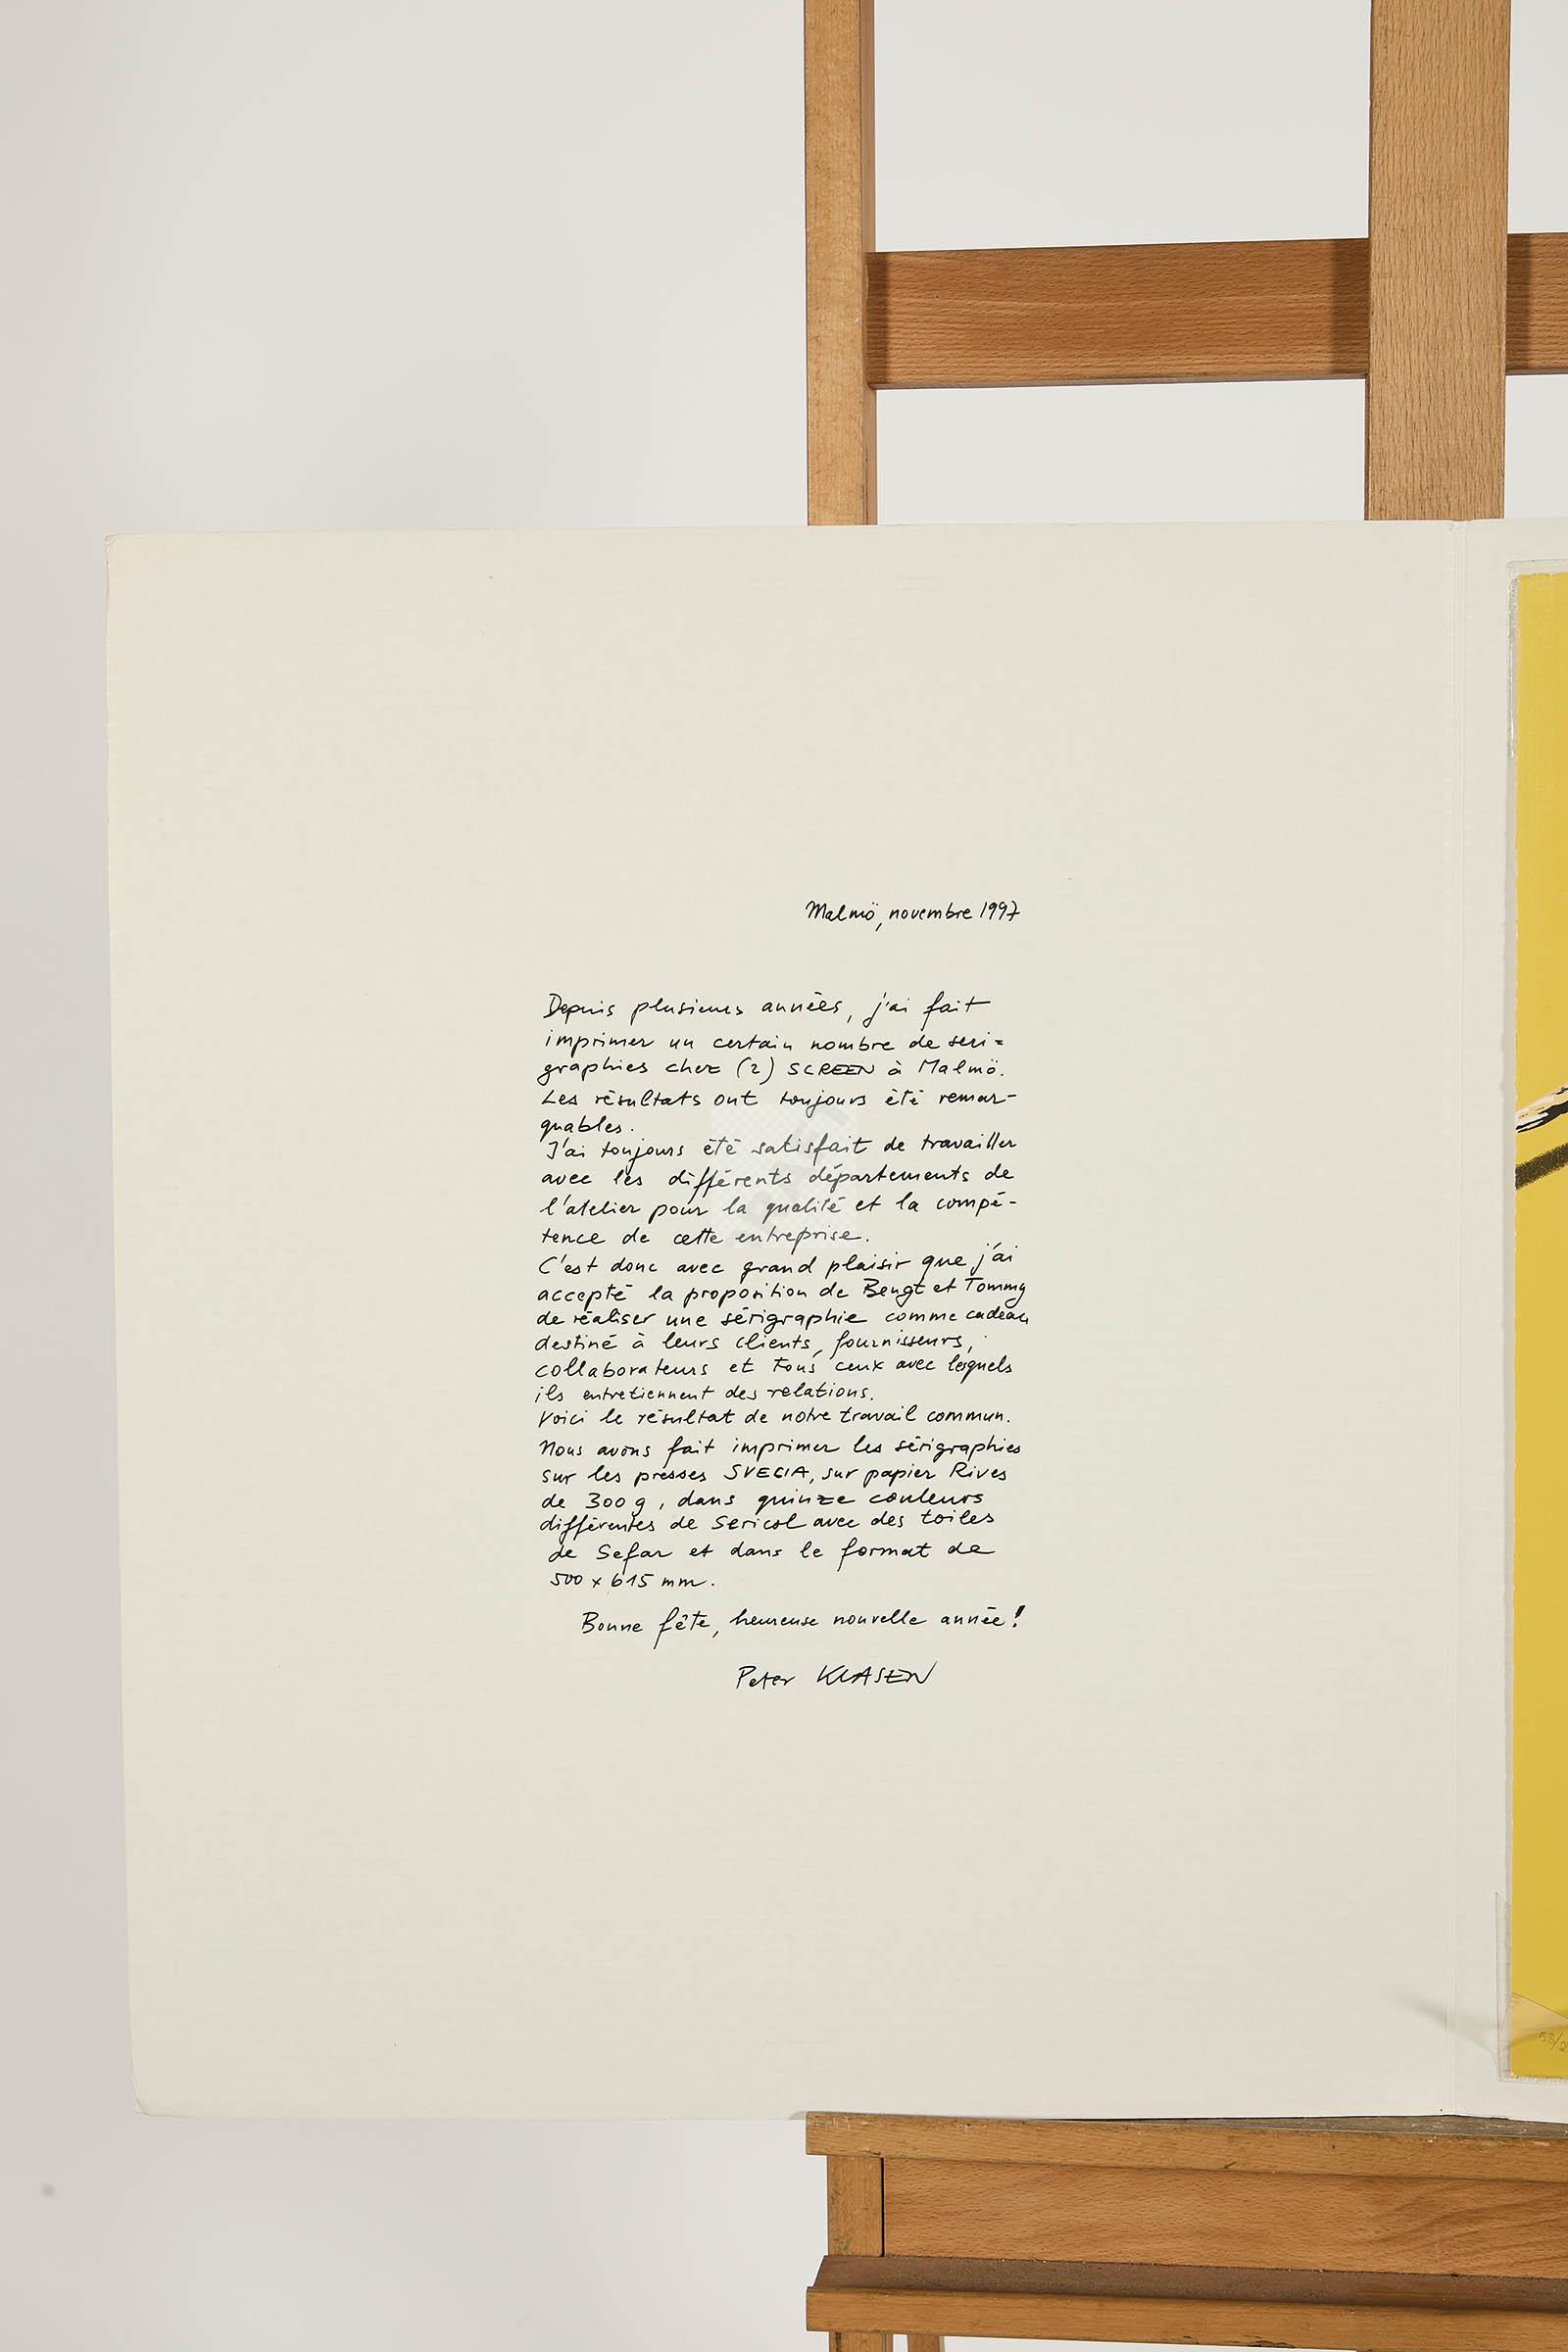 Malmö, novembre 1997
Depuis plusieurs années, j'ai fait
imprimer un certain nombre de seri=
graphies chez (2) SCREEN à Malmö.
Les résultats ont toujours été remar-
quables.
J'ai toujours été satisfait de travailler
avec les différents départements de
l'atelier pour la qualité et la compé-
tence de cette entreprise.
C'est donc avec grand plaisir que j'ai
accepté la proposition de Bengt et Tommy
de réaliser une sérigraphie comme cadeau
destiné à leurs clients, fournisseurs,
collaborateurs et tous ceux avec lesquels
ils entretiennent des relations.
Voici le résultat de notre travail commun.
Nous avons fait imprimer les sérigraphies
sur les presses SVECIA, sur papier Rives
de 300 g, dans quinze couleurs
différentes de Sericol avec des toiles
de Sefar et dans le format de
500 x 615 mm.
Bonne fête, heureuse nouvelle année!
Peter KLASEN